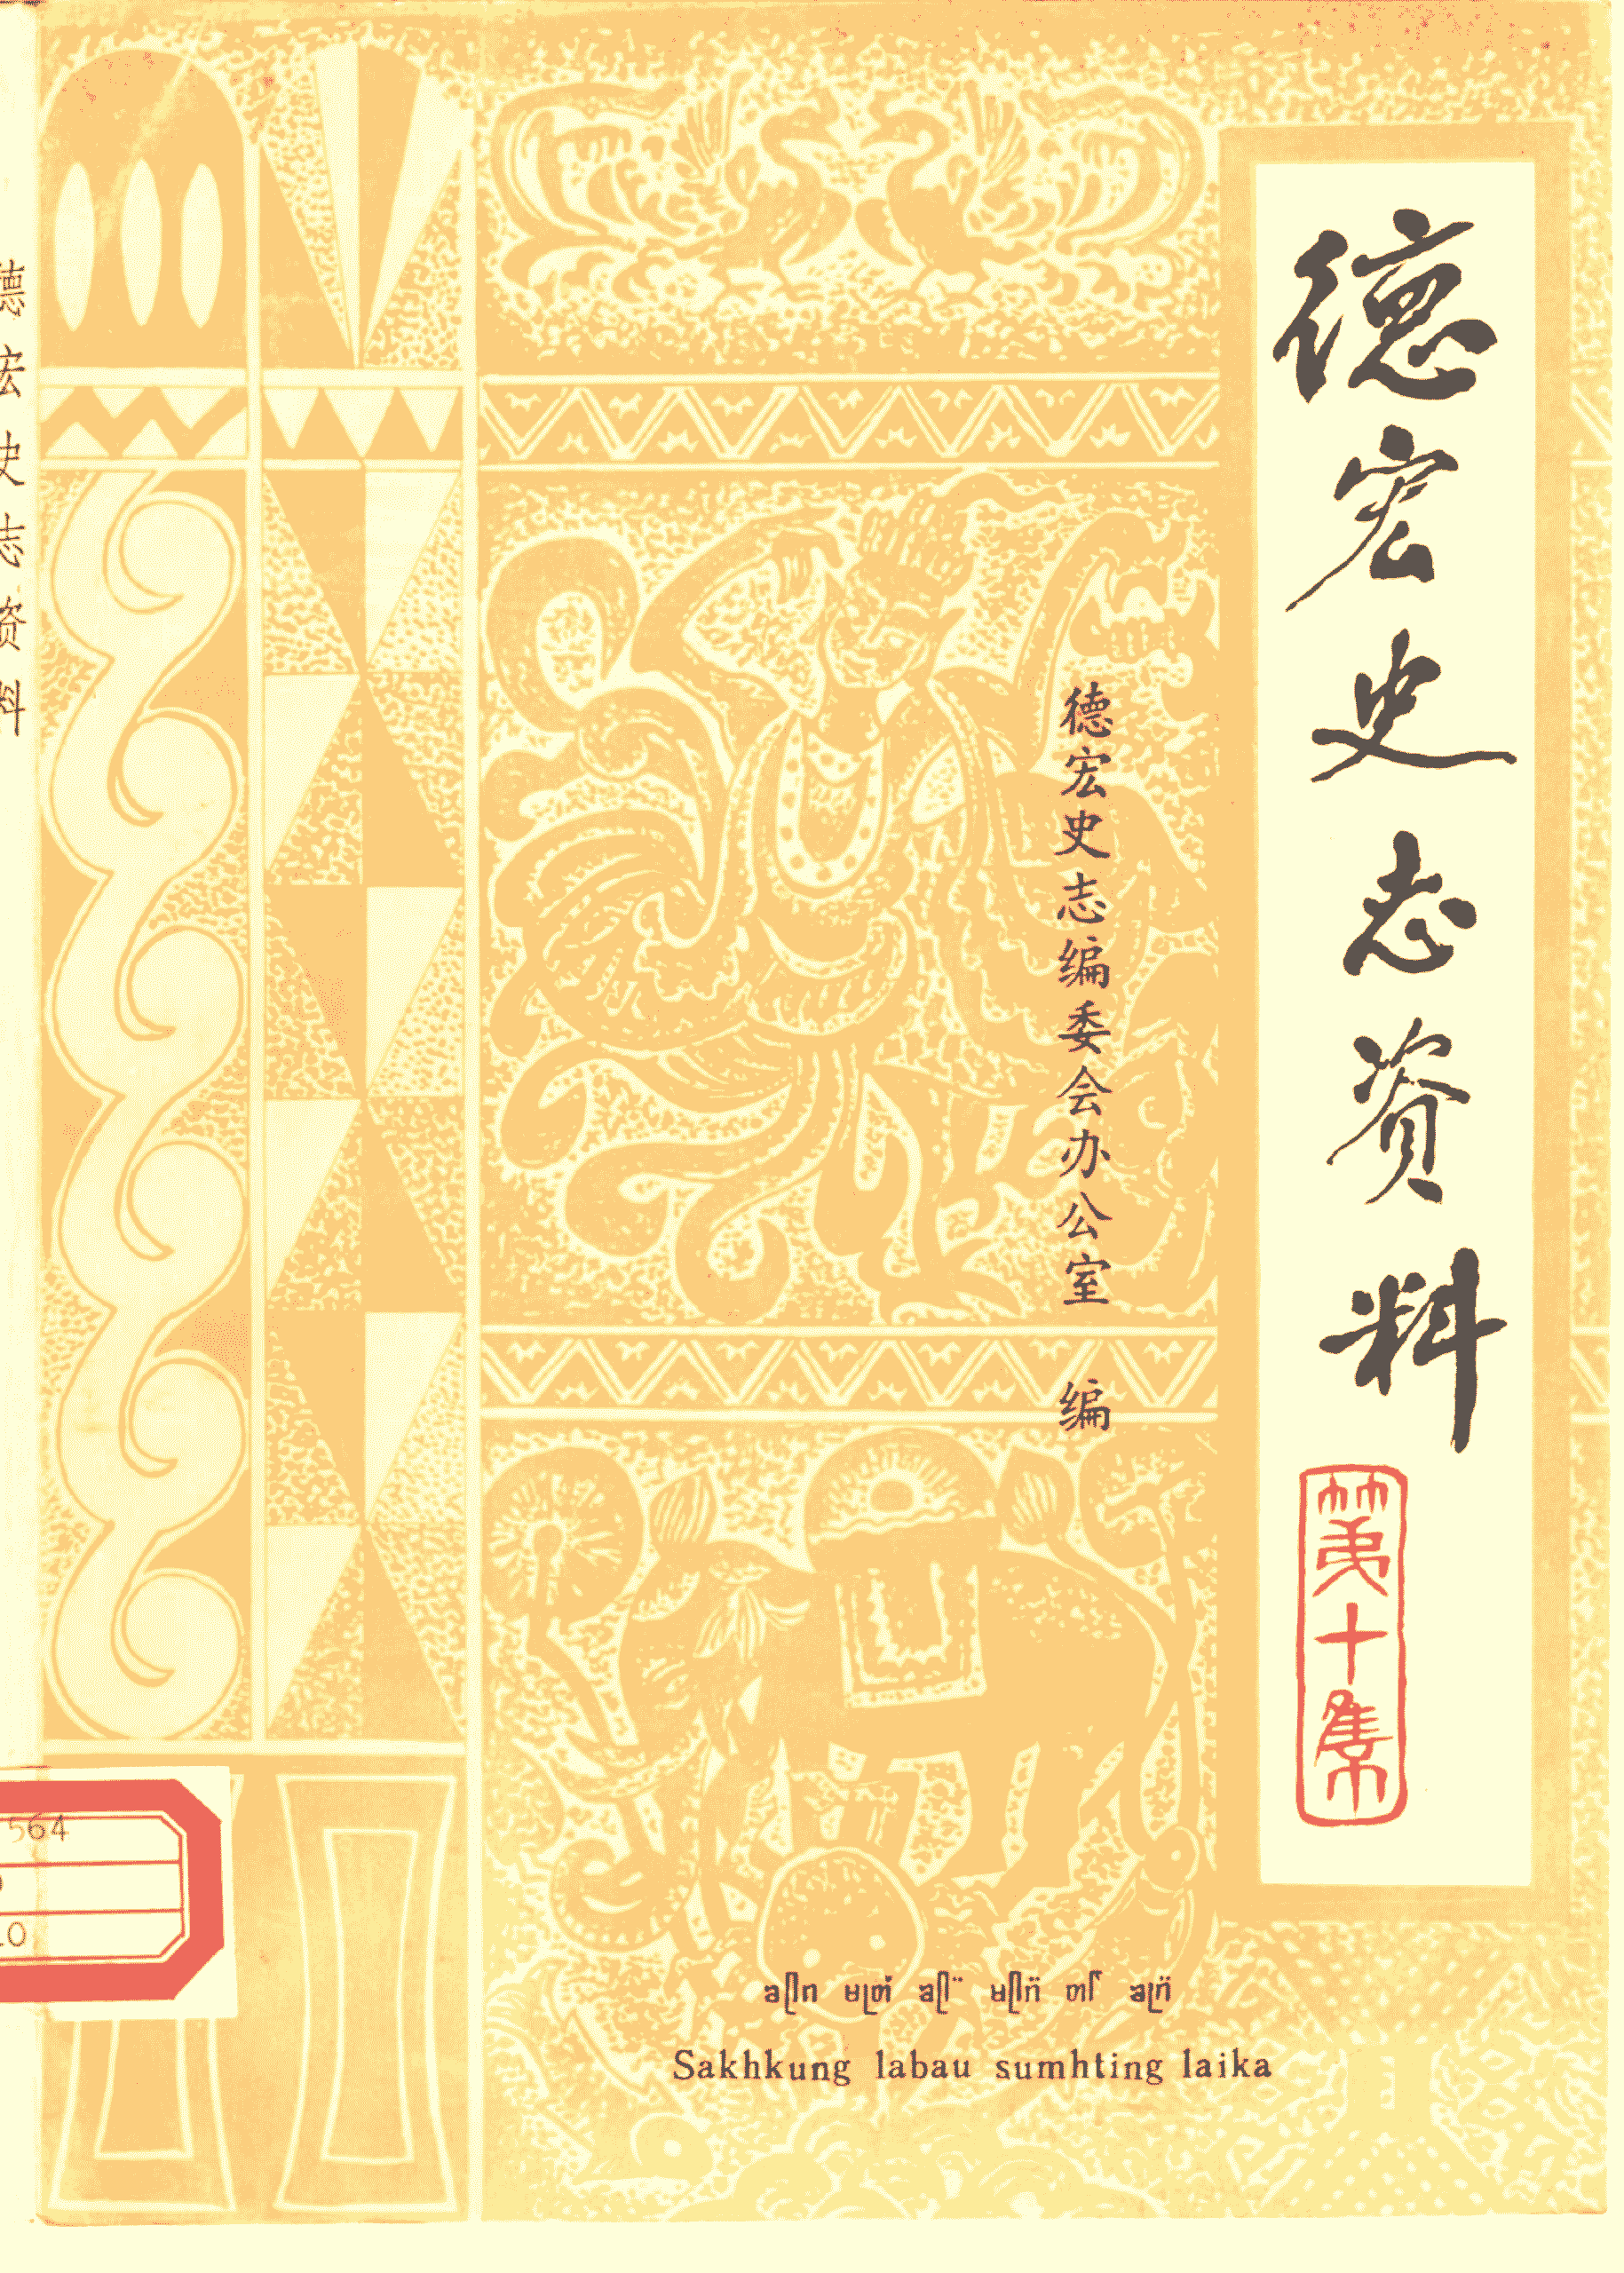 德宏史志资料
第十集
德宏史志编委会办公室 编
Sakhkung labau sumhting laika
德宏史志资料
564